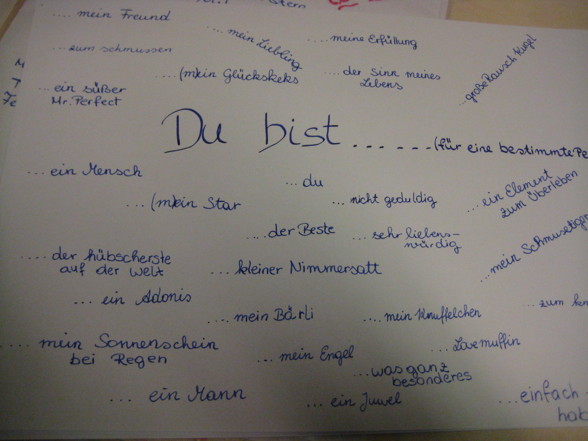 ... mein Freund
... zum schmussen
... mein Liebling
.... meine Erfüllung
... (m)ein Glückskeks
... der Sinn meines
Lebens
... ein süßer
Mr. Perfect
Du bist ...... (für eine bestimmte Pe
... ein Mensch
... du
... (m)ein Star
... nicht geduldig
... ein Element
zum Überleben
... der Beste
... sehr liebens-
würdig
.... der hübscherste
auf der Welt
... kleiner Nimmersatt
... mein Schmusetiger
... ein Adonis
.... mein Bärli
.... mein Knuffelchen
... zum
.... mein Sonnenschein
bei Regen
... mein Engel
... Lovemuffin
... was ganz
besonderes
... ein Mann
... ein Juwel
... einfach
hab